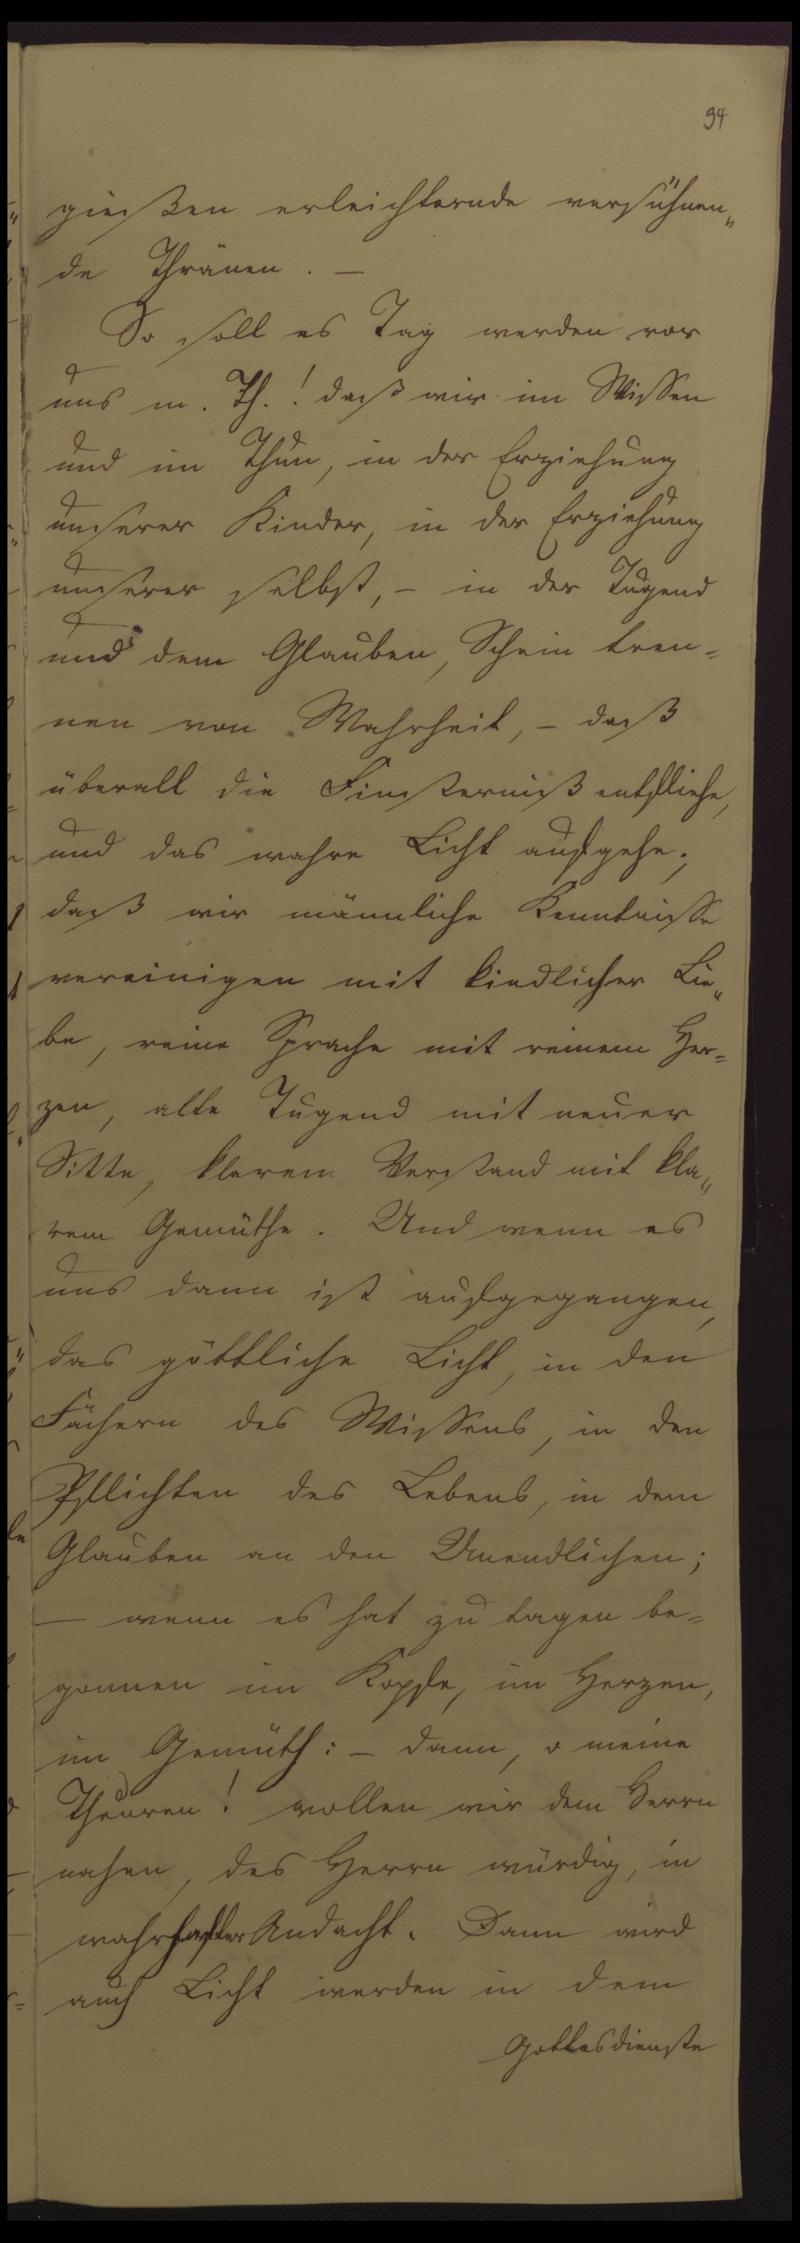 94
gießen erleichternde versühnen„
de Thränen. —
So soll es Tag werden vor
uns m. Th.! daß wir im Wissen
und im Thun, in der Erziehung
unserer Kinder, in der Erziehung
unserer selbst, – in der Tugend
und dem Glauben, Schein tren=
nen von Wahrheit, – daß
überall die Finsterniß entfliehe,
und das wahre Licht aufgehe;
daß wir männliche Kenntnisse
vereinigen mit kindlicher Lie„
be, reine Sprache mit reinem Her=
zen, alte Tugend mit neuer
Sitte, klaren Verstand mit kla„
rem Gemüthe. Und wenn es
uns dann ist aufgegangen,
das göttliche Licht, in den
Fächern des Wissens, in den
Pflichten des Lebens, in dem
Glauben an den Unendlichen;
— wenn es hat zu tagen be=
gonnen im Kopfe, im Herzen,
im Gemüth: – dann, o meine
Theuren! wollen wir dem Herrn
nahen, des Herrn würdig, in
wahrhafter Andacht. Dann wird
auch Licht werden in dem
Gottesdienste